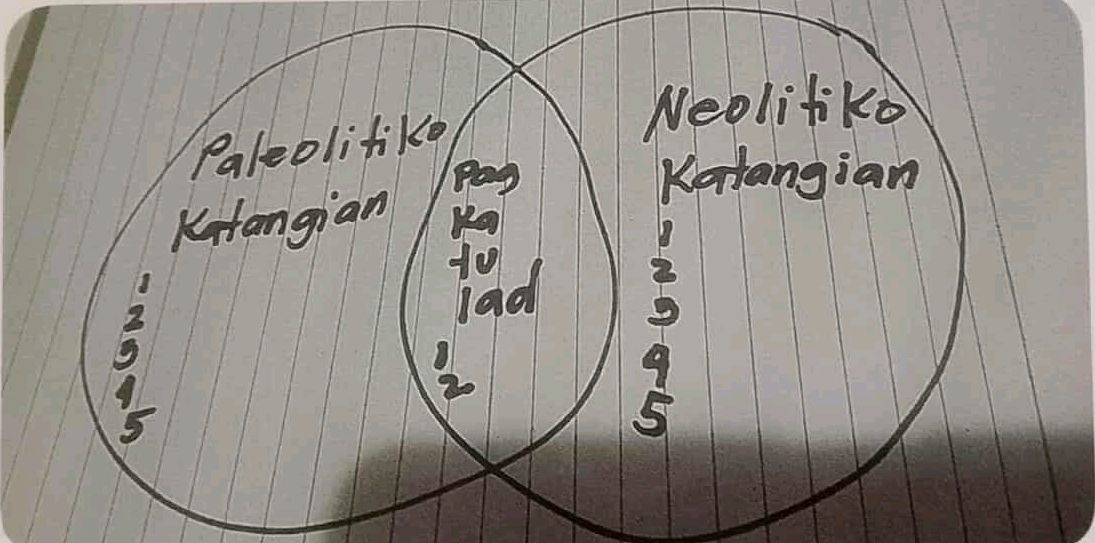 Paleolitiko
Katangian
1
2
3
4
5
Pag
ka
tu
lad
1
2
Neolitiko
Katangian
1
2
3
4
5